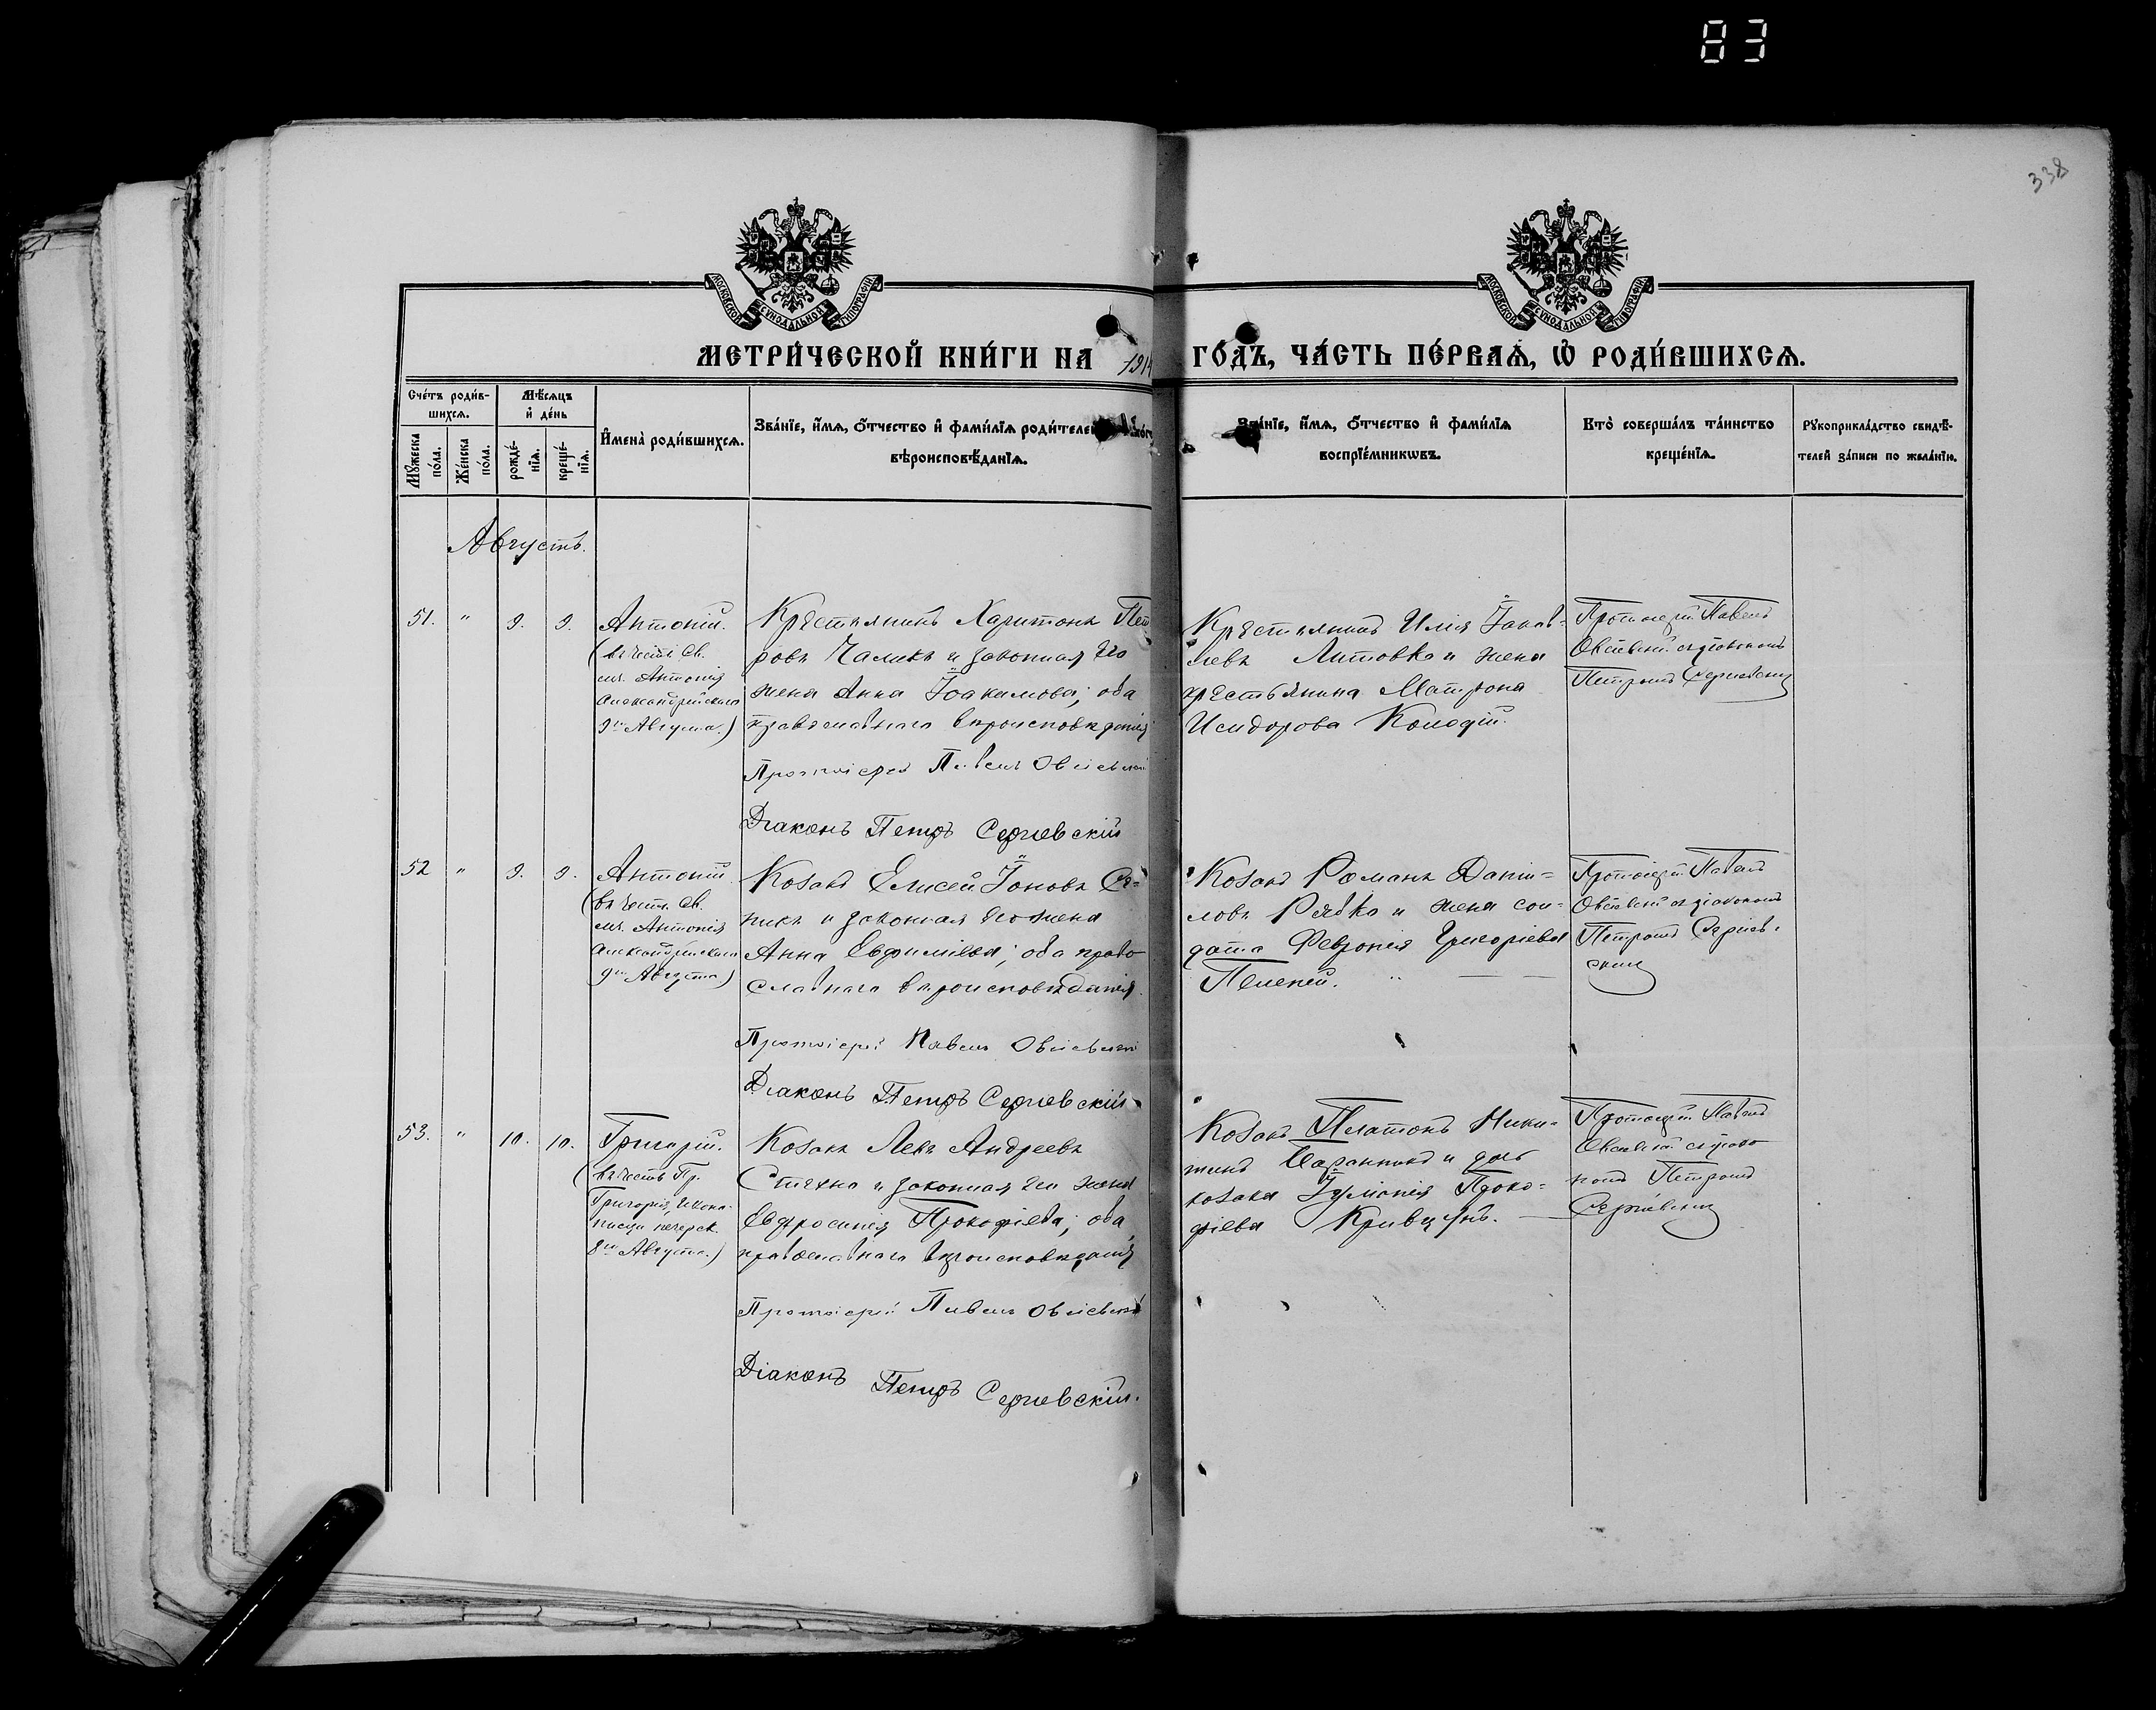 83
338
МОСКОВСКОЙ СѴНОДАЛЬНОЙ ТИПОГРАФІИ
МОСКОВСКОЙ СѴНОДАЛЬНОЙ ТИПОГРАФІИ
МЕТРИ́ЧЕСКОЙ КНИ́ГИ НА 1914 ГО́ДЪ, ЧА́СТЬ ПЕ́РВАѦ, Ѡ РОДИ́ВШИХСѦ.
Сче́тъ роди́в-
шихсѧ.
Мѣ́сѧцъ
и де́нь
Мꙋ́жеска по́ла.
Же́нска по́ла.
рожде́-
нїѧ.
креще́-
нїѧ.
Имена̀ роди́вшихсѧ.
Зва́нїе, и́мѧ, о́тчество и фами́лїѧ роди́телей
вѣроисповѣ́данїѧ.
Зва́нїе, и́мѧ, о́тчество и фами́лїѧ
воспрїе́мникѡвъ.
Кто̀ соверша́лъ та́инство
креще́нїѧ.
Рꙋкоприкла́дство свидѣ́-
телей за́писи по жела́нїю.
Августъ.
51. " 9. 9.
Антоній.
(въ честь Св.
мч. Антонія
Александрійскаго
9го Августа.)
Крестьянинъ Харитонъ Пет
ровъ Чаликъ и законная его
жена Анна Іоакимова; оба
православнаго вѣроисповѣданія
Протоіерей Павелъ
Діаконъ Петръ Сергіевскій
Крестьянинъ Илія Іаков-
левъ Литовка и жена
крестьянина Матрона
Исидорова Колодій.
Протоіерей Павелъ
съ діакономъ
Петромъ Сергіевскимъ
52 " 9. 9.
Антоній.
(въ честь Св.
мч. Антонія
Александрійскаго
9го Августа)
Козакъ Елисей Іоновъ
и законная его жена
Анна Евфиміева; оба право
славнаго вѣроисповѣданія.
Протоіерей Павелъ
Діаконъ Петръ Сергіевскій
Козакъ Романъ Даніи=
ловъ Рябко и жена сол-
дата Февронія Григоріева
Пелепей.
Протоіерей Павелъ
съ діакономъ
Петромъ Сергіев-
скимъ
53. " 10. 10.
Григорій.
(въ честь Пр.
Григорія, Иконо-
писца печерск.
8го Августа.)
Козакъ Левъ Андреевъ
и законная его жена
Евфросинія Прокофіева; оба
православнаго вѣроисповѣданія
Протоіерей Павелъ
Діаконъ Петръ Сергіевскій.
Козакъ Платонъ Ники-
тинъ и дочь
козака Іуліанія Проко=
фіева Кривцунъ.
Протоіерей Павелъ
съ діако
номъ Петромъ
Сергіевскимъ